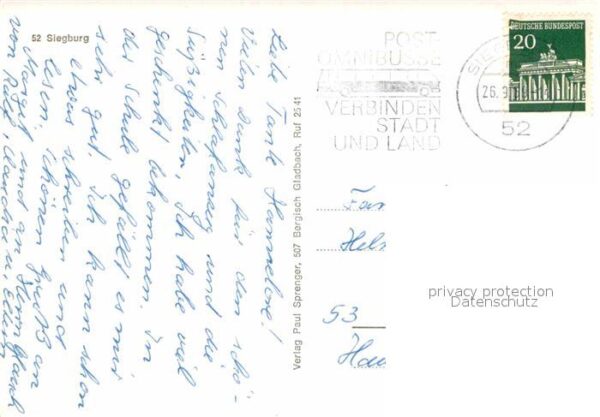 52 Siegburg
Liebe Tante Hannelore!
Vielen Dank für den schö-
nen Schlafanzug und die
Süßigkeiten. Ich habe viel
geschenkt bekommen. In
der Schule gefällt es mir
sehr gut. Ich kann schon
etwas schreiben und
lesen. Schönen Gruß an
Margit und an Herrn
von Ralf, Claudia u. Eltern
Verlag Paul Sprenger, 507 Bergisch Gladbach, Ruf 2541
POST-
OMNIBUSSE
VERBINDEN
STADT
UND LAND
26.9.
52
DEUTSCHE BUNDESPOST
20
Fam
Hel
53
Hau
privacy protection
Datenschutz